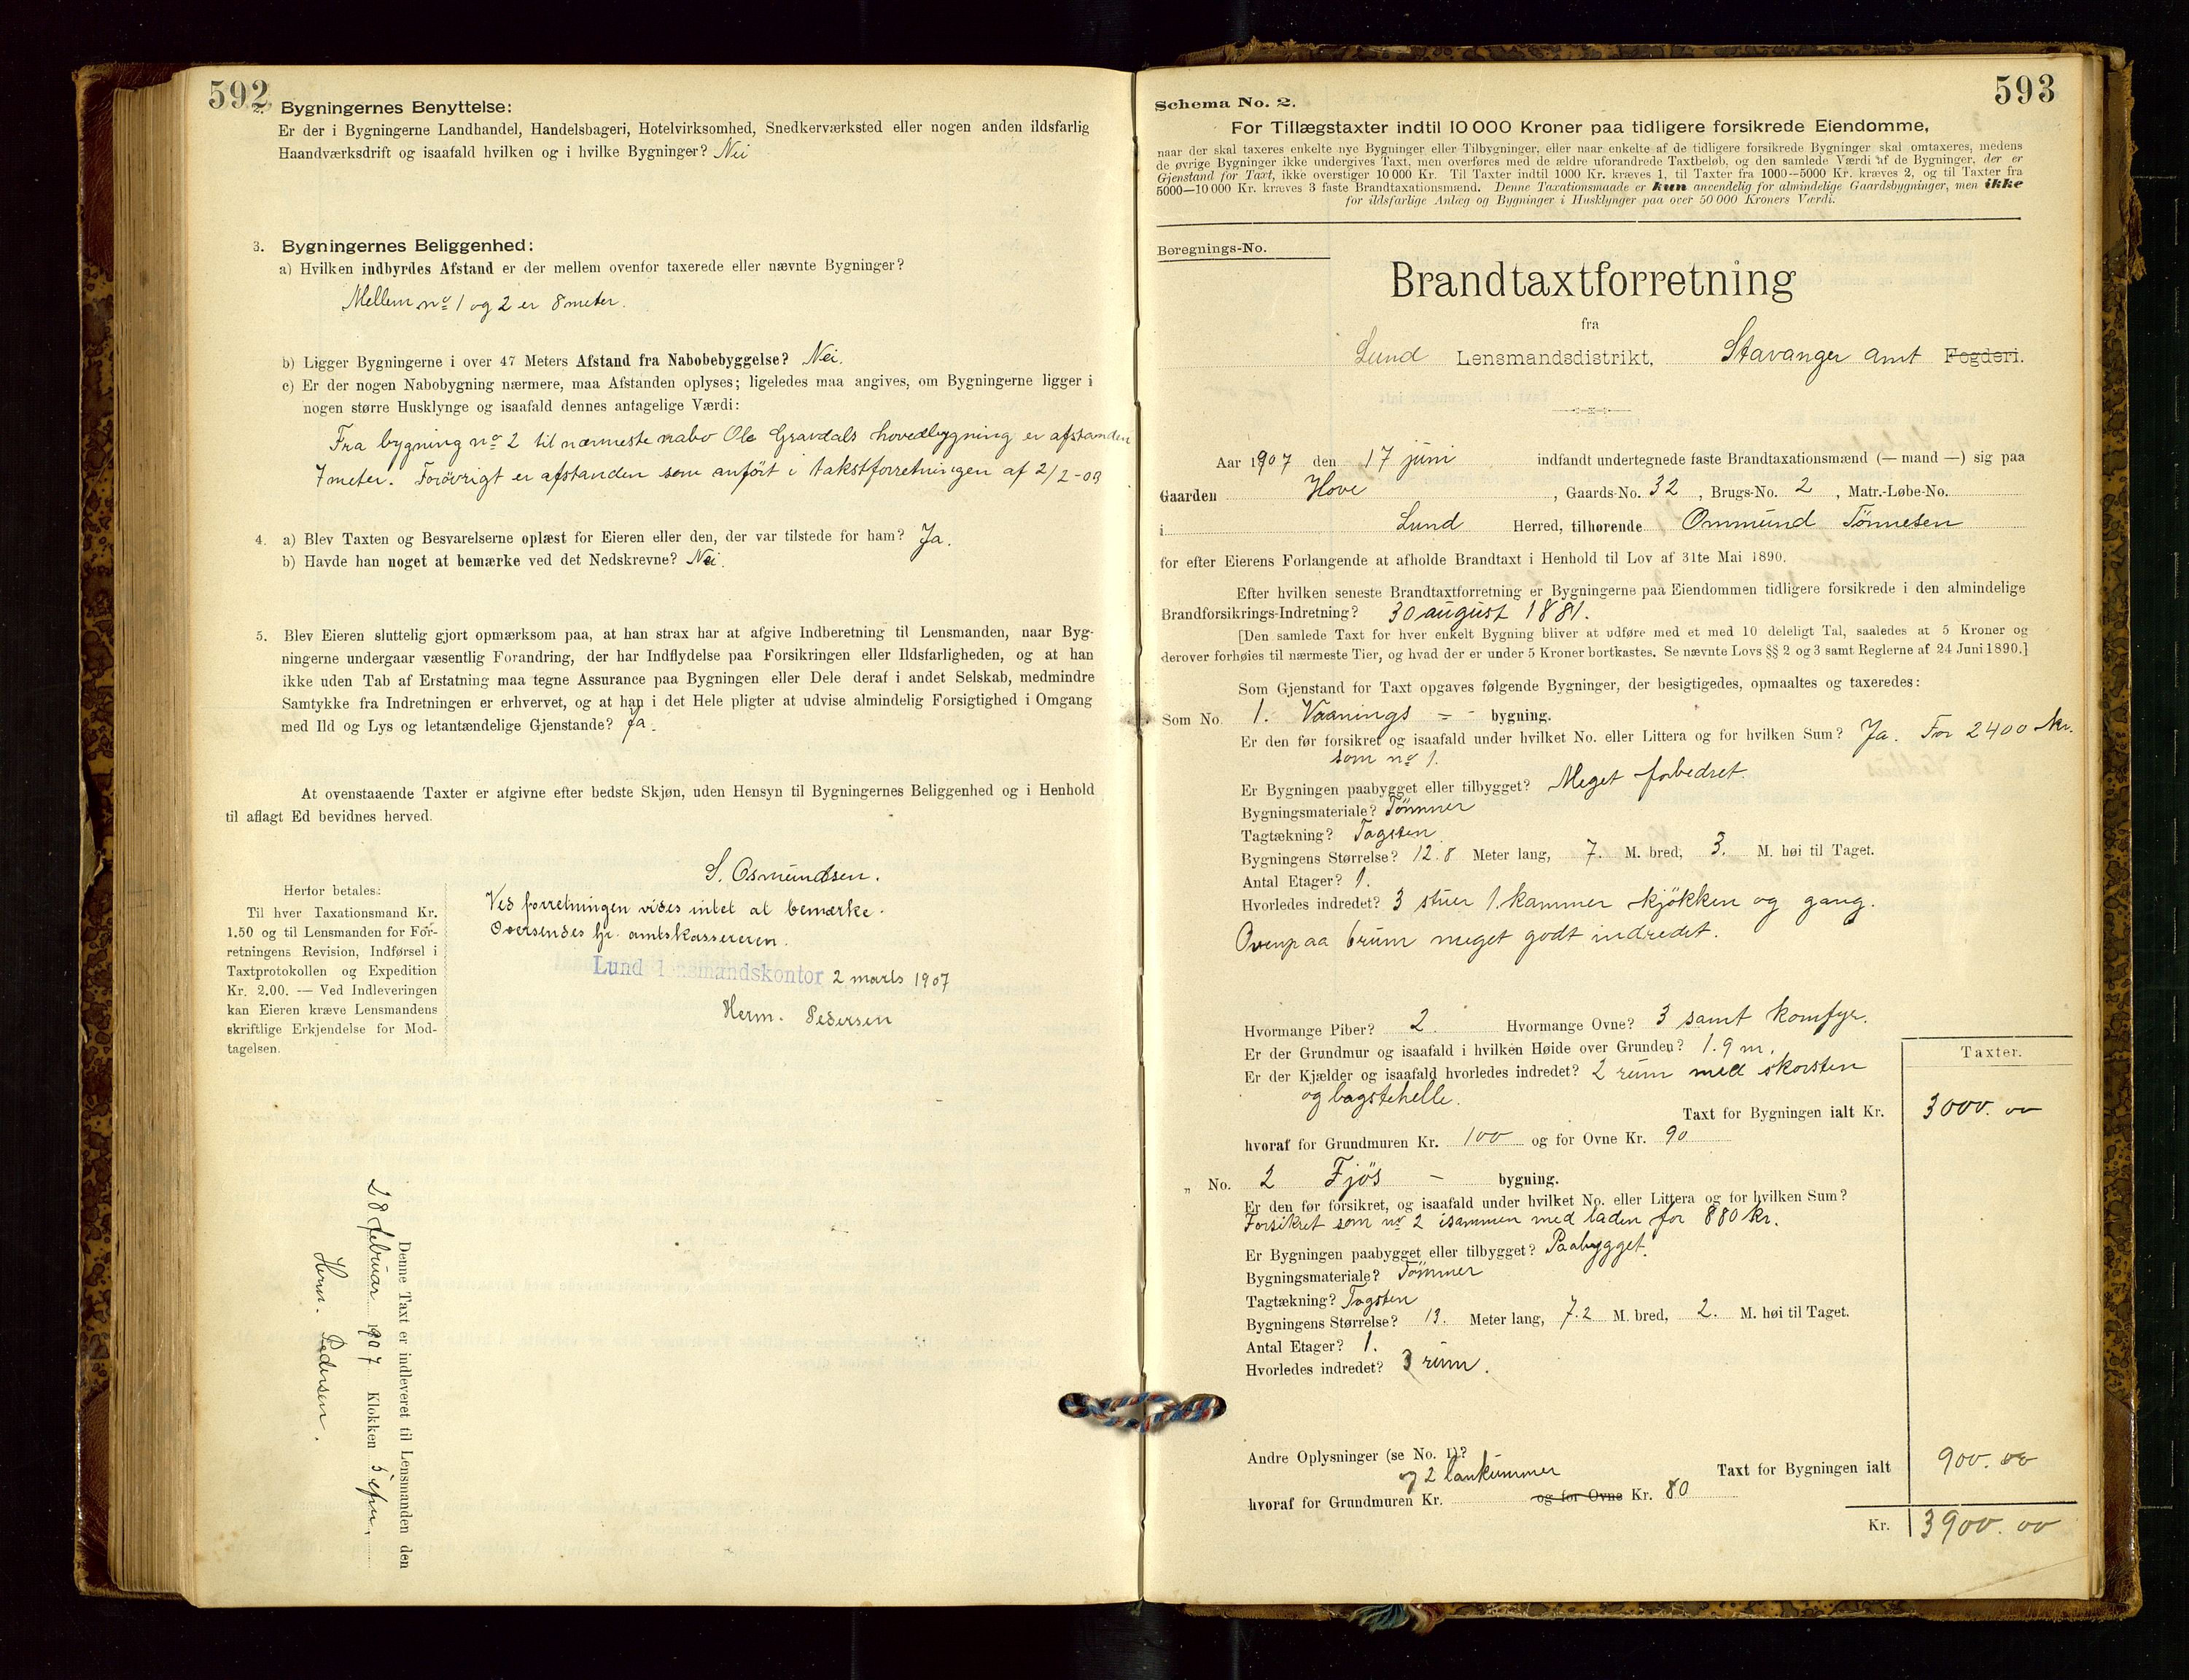 592
2. Bygningernes Benyttelse:
Er der i Bygningerne Landhandel, Handelsbageri, Hotelvirksomhed, Snedkerværksted eller nogen anden ildsfarlig
Haandværksdrift og isaafald hvilken og i hvilke Bygninger? Nei
3. Bygningernes Beliggenhed:
a) Hvilken indbyrdes Afstand er der mellem ovenfor taxerede eller nævnte Bygninger?
Mellem no 1 og 2 er 8 meter.
b) Ligger Bygningerne i over 47 Meters Afstand fra Nabobebyggelse? Nei.
c) Er der nogen Nabobygning nærmere, maa Afstanden oplyses; ligeledes maa angives, om Bygningerne ligger i
nogen større Husklynge og isaafald dennes antagelige Værdi:
Fra bygning no 2 til nærmeste nabo Ole Gravdals hovedbygning er afstanden
7 meter. Forøvrigt er afstanden som anført i takstforretningen af 2/2-03
4. a) Blev Taxten og Besvarelserne oplæst for Eieren eller den, der var tilstede for ham? Ja.
b) Havde han noget at bemærke ved det Nedskrevne? Nei.
5. Blev Eieren sluttelig gjort opmærksom paa, at han strax har at afgive Indberetning til Lensmanden, naar Byg-
ningerne undergaar væsentlig Forandring, der har Indflydelse paa Forsikringen eller Ildsfarligheden, og at han
ikke uden Tab af Erstatning maa tegne Assurance paa Bygningen eller Dele deraf i andet Selskab, medmindre
Samtykke fra Indretningen er erhvervet, og at han i det Hele pligter at udvise almindelig Forsigtighed i Omgang
med Ild og Lys og letantændelige Gjenstande? Ja.
At ovenstaaende Taxter er afgivne efter bedste Skjøn, uden Hensyn til Bygningernes Beliggenhed og i Henhold
til aflagt Ed bevidnes herved.
S. Osmundsen.
Herfor betales:
Til hver Taxationsmand Kr.
1.50 og til Lensmanden for For-
retningens Revision, Indførsel i
Taxtprotokollen og Expedition
Kr. 2.00. — Ved Indleveringen
kan Eieren kræve Lensmandens
skriftlige Erkjendelse for Mod-
tagelsen.
Ved forretningen vides intet at bemærke.
Oversendes hr. amtskassereren.
Lund lensmandskontor 2 marts 1907
Herm. Pedersen
Denne Taxt er indleveret til Lensmanden den
28 februar 1907 Klokken 5 efm.
Herm. Pedersen.
593
Schema No. 2.
For Tillægstaxter indtil 10 000 Kroner paa tidligere forsikrede Eiendomme,
naar der skal taxeres enkelte nye Bygninger eller Tilbygninger, eller naar enkelte af de tidligere forsikrede Bygninger skal omtaxeres, medens
de øvrige Bygninger ikke undergives Taxt, men overføres med de ældre uforandrede Taxtbeløb, og den samlede Værdi af de Bygninger, der er
Gjenstand for Taxt, ikke overstiger 10 000 Kr. Til Taxter indtil 1000 Kr. kræves 1, til Taxter fra 1000—5000 Kr. kræves 2, og til Taxter fra
5000—10 000 Kr. kræves 3 faste Brandtaxationsmænd. Denne Taxationsmaade er kun anvendelig for almindelige Gaardsbygninger, men ikke
for ildsfarlige Anlæg og Bygninger i Husklynger paa over 50 000 Kroners Værdi.
Beregnings-No.
Brandtaxtforretning
fra
Lund Lensmandsdistrikt, Stavanger amt Fogderi.
Aar 1907 den 17 juni indfandt undertegnede faste Brandtaxationsmænd (— mand —) sig paa
Gaarden Hove, Gaards-No. 32, Brugs-No. 2, Matr.-Løbe-No.
i Lund Herred, tilhørende Ommund Tönnesen
for efter Eierens Forlangende at afholde Brandtaxt i Henhold til Lov af 31te Mai 1890.
Efter hvilken seneste Brandtaxtforretning er Bygningerne paa Eiendommen tidligere forsikrede i den almindelige
Brandforsikrings-Indretning? 30 august 1881.
[Den samlede Taxt for hver enkelt Bygning bliver at udføre med et med 10 deleligt Tal, saaledes at 5 Kroner og
derover forhøies til nærmeste Tier, og hvad der er under 5 Kroner bortkastes. Se nævnte Lovs §§ 2 og 3 samt Reglerne af 24 Juni 1890.]
Som Gjenstand for Taxt opgaves følgende Bygninger, der besigtigedes, opmaaltes og taxeredes:
Som No. 1. Vaanings - bygning.
Er den før forsikret og isaafald under hvilket No. eller Littera og for hvilken Sum? Ja. For 2400 kr.
som no 1.
Er Bygningen paabygget eller tilbygget? Meget forbedret.
Bygningsmateriale? Tömmer
Tagtækning? Tagsten
Bygningens Størrelse? 12.8 Meter lang, 7. M. bred, 3. M. høi til Taget.
Antal Etager? 1.
Hvorledes indredet? 3 stuer 1 kammer kjökken og gang.
Ovenpaa 6 rum meget godt indredet.
Hvormange Piber? 2. Hvormange Ovne? 3 samt komfyr.
Er der Grundmur og isaafald i hvilken Høide over Grunden? 1.9 m.
Er der Kjælder og isaafald hvorledes indredet? 2 rum med skorsten
og bagstehelle.
Taxter.
Taxt for Bygningen ialt Kr. 3000.00
hvoraf for Grundmuren Kr. 100 og for Ovne Kr. 90
„ No. 2 Fjös - bygning.
Er den før forsikret, og isaafald under hvilket No. eller Littera og for hvilken Sum?
Forsikret som no 2 isammen med laden for 880 kr.
Er Bygningen paabygget eller tilbygget? Paabygget.
Bygningsmateriale? Tömmer
Tagtækning? Tagsten
Bygningens Størrelse? 13. Meter lang, 7.2 M. bred, 2. M. høi til Taget.
Antal Etager? 1.
Hvorledes indredet? 3 rum.
Andre Oplysninger (se No. 1)?
Taxt for Bygningen ialt 900.00
og 2 lankummer
hvoraf for Grundmuren Kr. og for Ovne Kr. 80
Kr. 3900.00